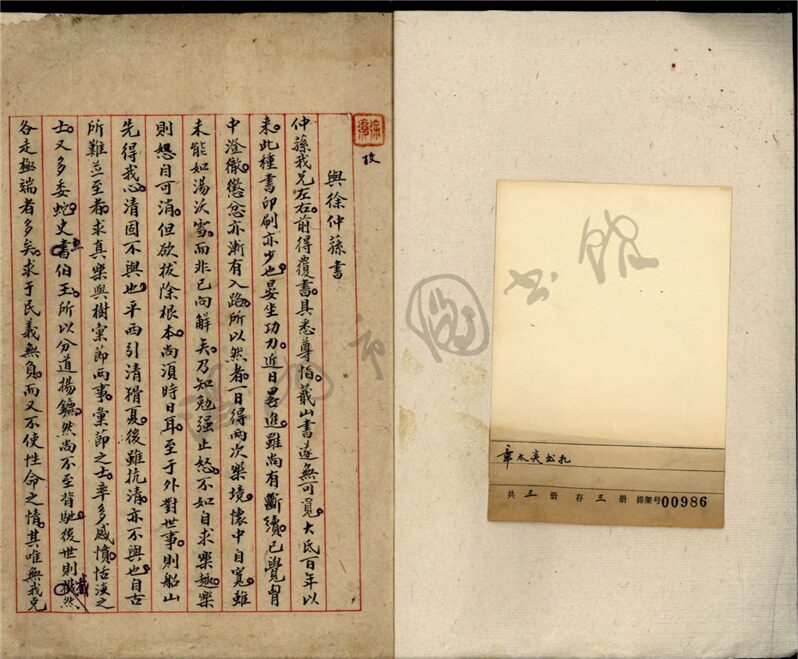 與徐仲蓀書
仲蓀我兄左右前得覆書具悉尊恉蕺山書遂無可覓大氐百年以
來此種書印刷亦少也晏坐功力近日畧進雖尚有斷續已覺胷
中澄徹懲忿亦漸有入路所以然者一日得兩次樂境懷中自寬雖
未能如湯沃雪而非已向解矣乃知勉强止怒不如自求樂趣樂
則怒自可消但欲拔除根本尚須時日耳至于外對世事則船山
先得我心清固不與也平西引清猾夏後雖抗清亦不與也自古
所難並至者求真樂與樹棄節兩事棄節之士率多感憤恬淡之
士又多委蛇史魚書伯玉所以分道揚鑣然尚不至背馳後世則截然
各走極端者多矣求于民義無負而又不使性命之情其唯無我兄
章太炎書札
共 三 册 存 三 册 排架号00986